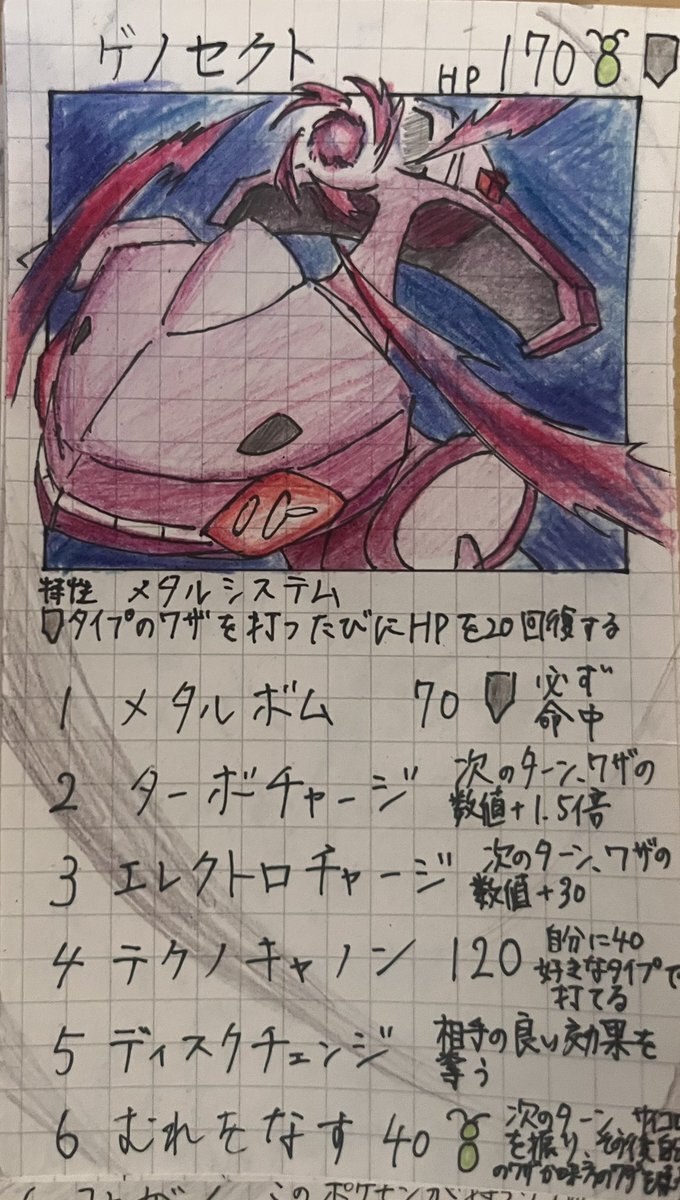 ゲノセクト HP 170
OG
特性 メタルシステム
タイプのワザを打ったびにHPを20回復する
1 メタルボム 70 必ず
命中
2 ターボチャージ 次のターン、ワザの
数値+1.5倍
3 エレクトロチャージ 次のターン、ワザの
数値+30
4 テクノキャノン 120 自分に40
好きなタイプで
打てる
5 ディスクチェンジ 相手の良い効果を
奪う
6 むれをなす 40 次のターン、サイコロ
を振り、その後自
のワザか味方のワザを
このポケモンが